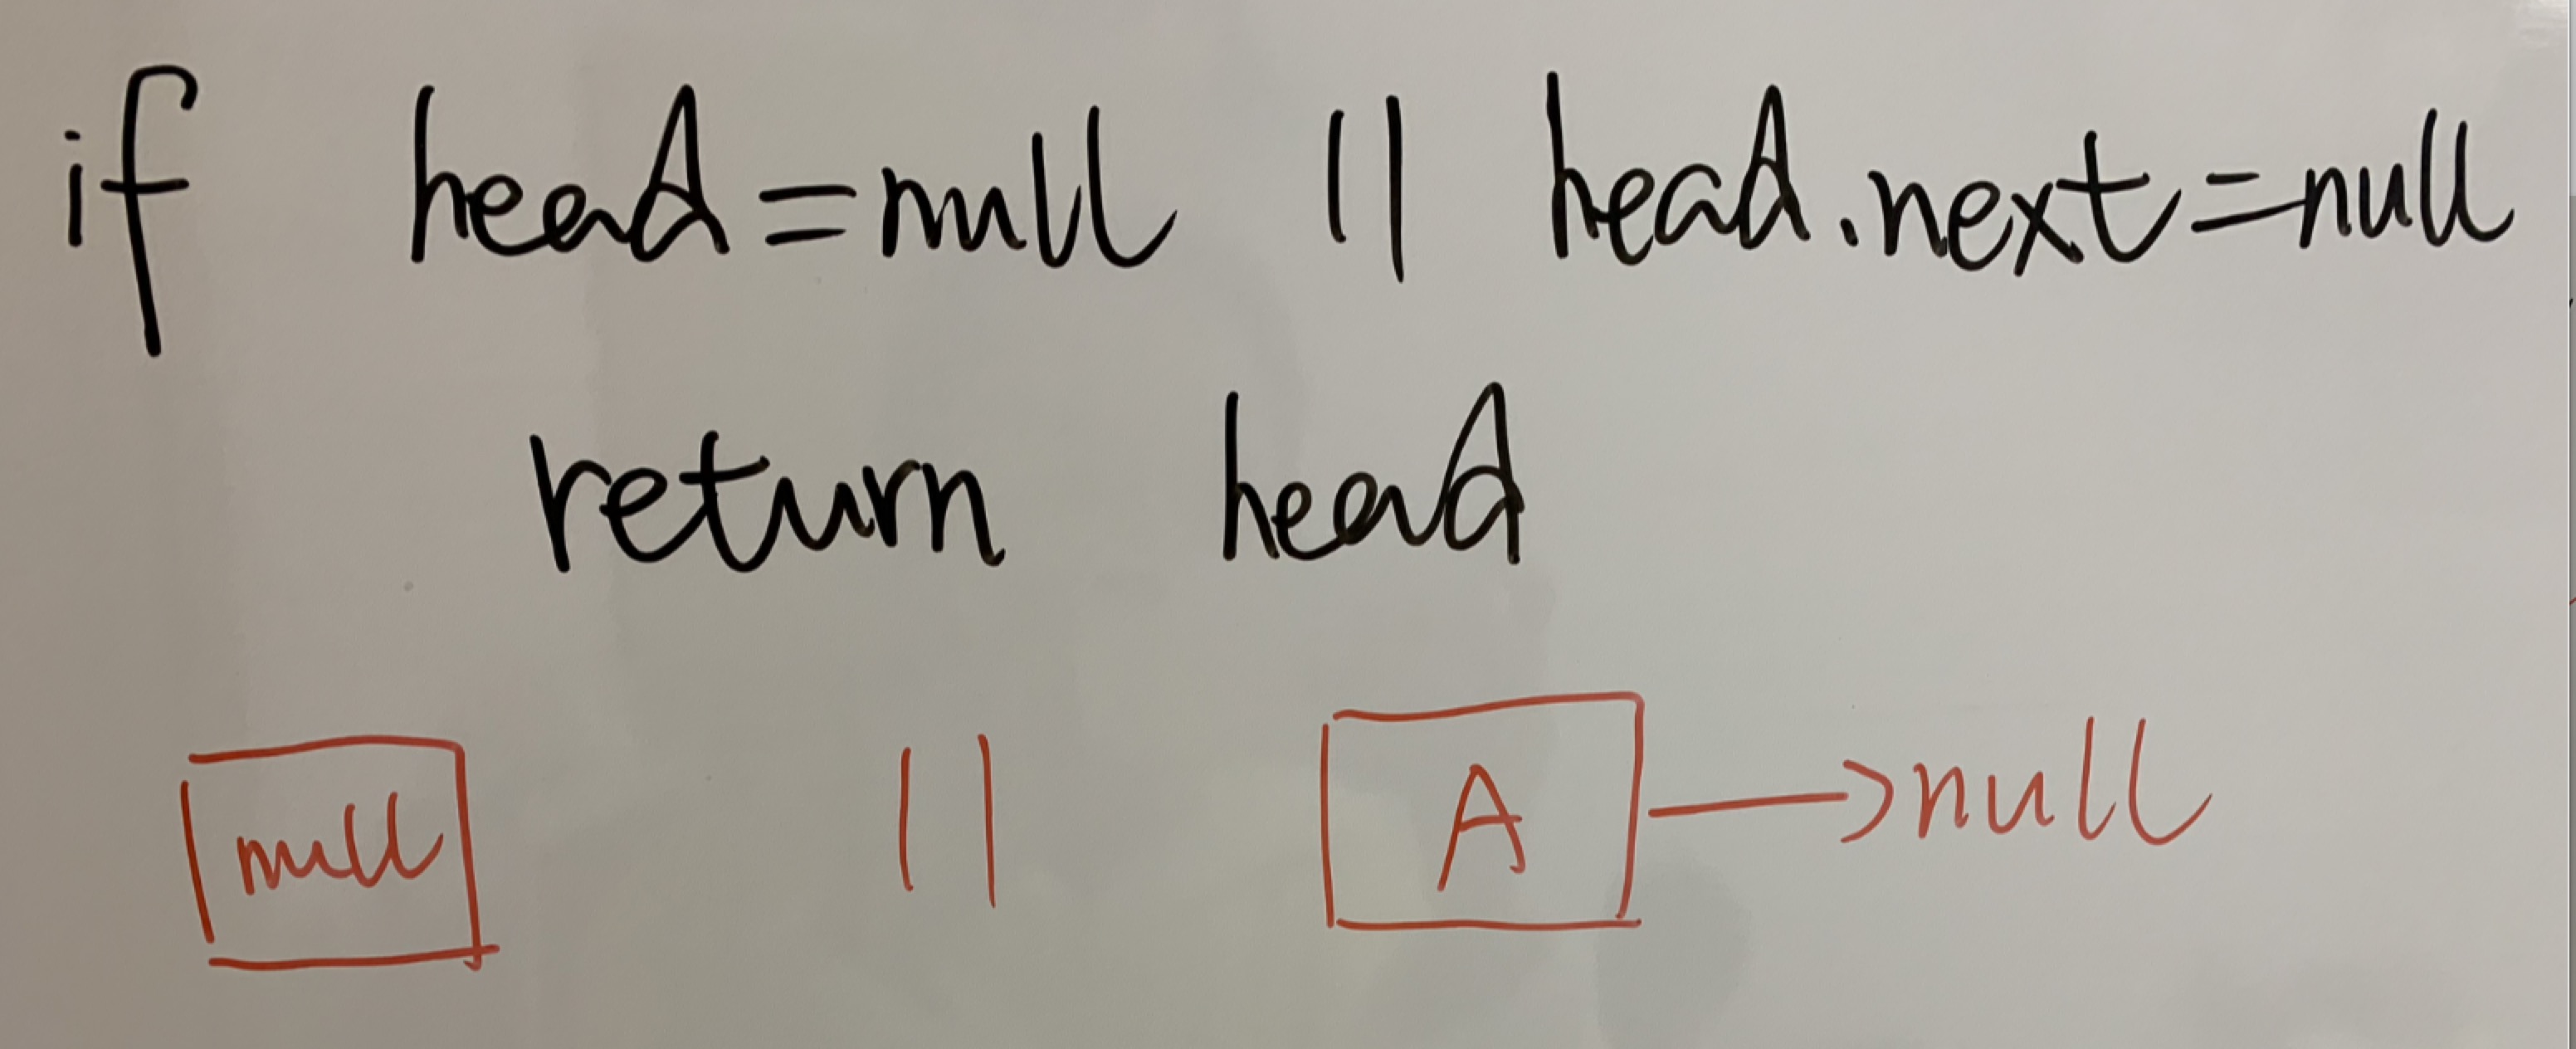 if head=null || head.next=null
return head
null || A →null